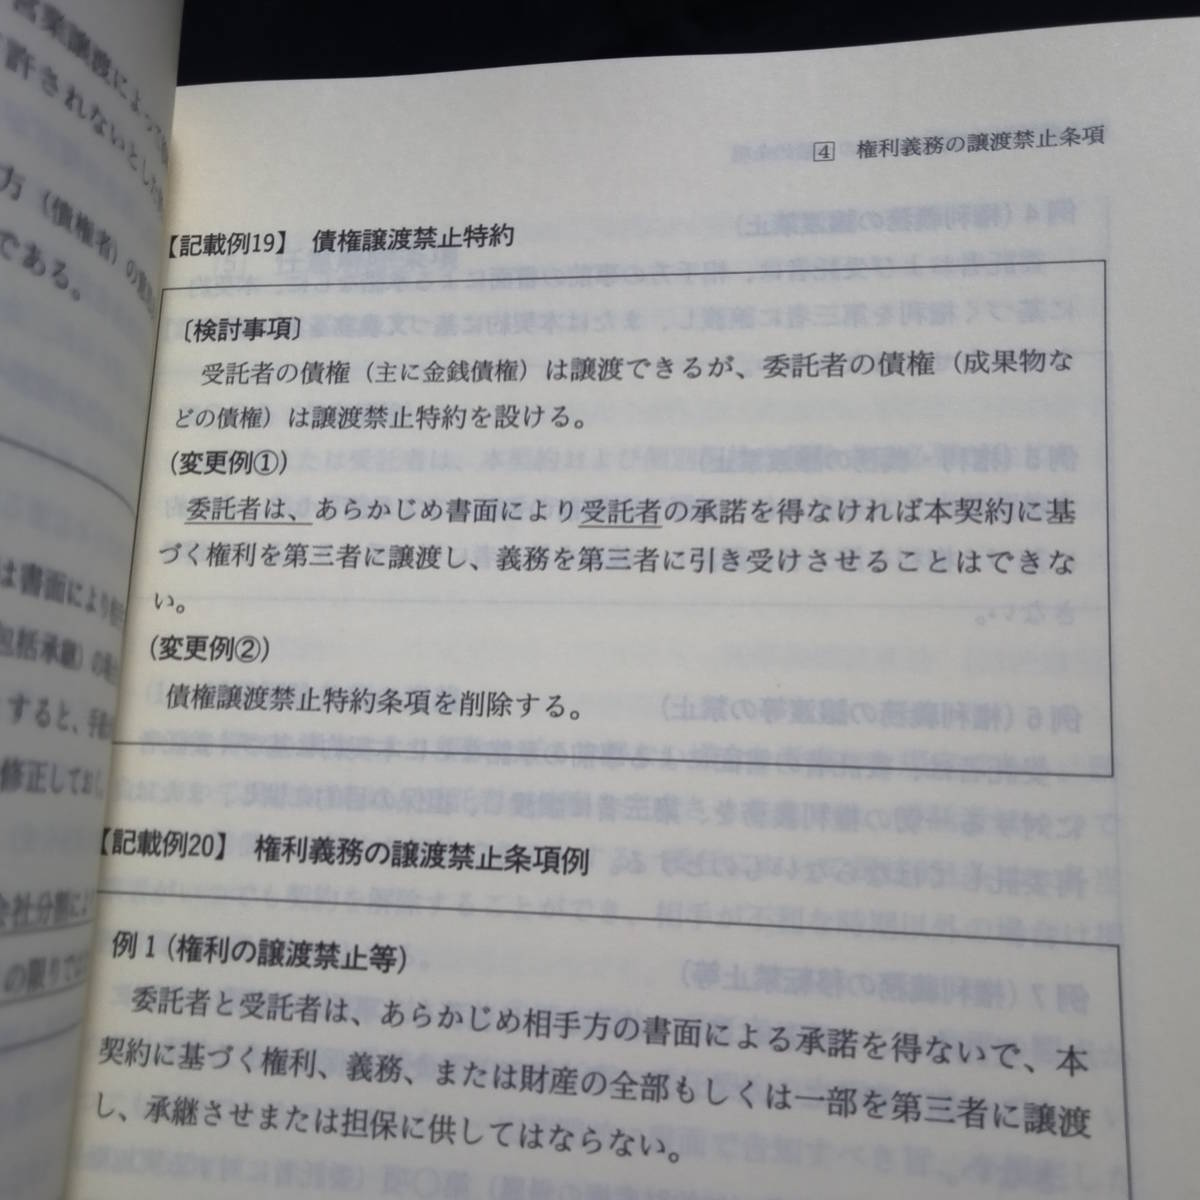 4 権利義務の譲渡禁止条項
【記載例19】 債権譲渡禁止特約
〔検討事項〕
受託者の債権（主に金銭債権）は譲渡できるが、委託者の債権（成果物な
どの債権）は譲渡禁止特約を設ける。
（変更例①）
委託者は、あらかじめ書面により受託者の承諾を得なければ本契約に基
づく権利を第三者に譲渡し、義務を第三者に引き受けさせることはできな
い。
（変更例②）
債権譲渡禁止特約条項を削除する。
【記載例20】 権利義務の譲渡禁止条項例
例1（権利の譲渡禁止等）
委託者と受託者は、あらかじめ相手方の書面による承諾を得ないで、本
契約に基づく権利、義務、または財産の全部もしくは一部を第三者に譲渡
し、承継させまたは担保に供してはならない。
営業譲渡によって
許されないとした
方（債権者）の
である。
は書面により
包括承継）の
すると、手
修正しておし
会社分割によ
の限りでは